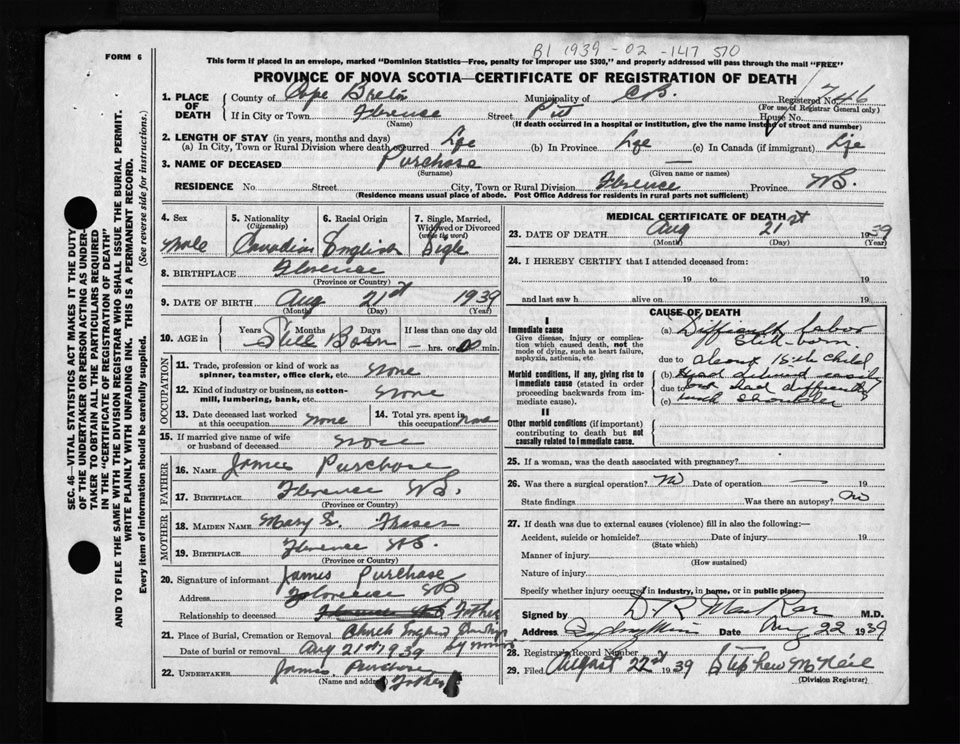 B1 1939 - 02 - 147 510
FORM 6
This form if placed in an envelope, marked "Dominion Statistics—Free, penalty for improper use $300," and properly addressed will pass through the mail "FREE"
PROVINCE OF NOVA SCOTIA—CERTIFICATE OF REGISTRATION OF DEATH
Registered No. 746
(For use of Registrar General only)
1. PLACE OF DEATH County of Cape Breton Municipality of C.B.
If in City or Town Florence Street House No.
(Name) (If death occurred in a hospital or institution, give the name instead of street and number)
2. LENGTH OF STAY (in years, months and days)
(a) In City, Town or Rural Division where death occurred Life (b) In Province Life (c) In Canada (if immigrant) Life
3. NAME OF DECEASED Purchase —
(Surname) (Given name or names)
RESIDENCE No. Street City, Town or Rural Division Florence Province N.S.
(Residence means usual place of abode. Post Office Address for residents in rural parts not sufficient)
4. Sex Male
5. Nationality (Citizenship) Canadian
6. Racial Origin English
7. Single, Married, Widowed or Divorced (write the word) Sigle
8. BIRTHPLACE Florence
(Province or Country)
9. DATE OF BIRTH Aug 21st 1939
(Month) (Day) (Year)
10. AGE in Years Months Days If less than one day old
Still Born — hrs. or min.
OCCUPATION
11. Trade, profession or kind of work as spinner, teamster, office clerk, etc. None
12. Kind of industry or business, as cotton-mill, lumbering, bank, etc. None
13. Date deceased last worked at this occupation None
14. Total yrs. spent in this occupation None
15. If married give name of wife or husband of deceased None
FATHER
16. NAME James Purchase
17. BIRTHPLACE Florence N.S.
(Province or Country)
MOTHER
18. MAIDEN NAME Mary E. Fraser
19. BIRTHPLACE Florence N.S.
(Province or Country)
20. Signature of informant James Purchase
Address Florence N.S.
Relationship to deceased Father
21. Place of Burial, Cremation or Removal Church England
Date of burial or removal Aug 21st 1939
22. UNDERTAKER James Purchase
(Name and address) (Father)
MEDICAL CERTIFICATE OF DEATH
23. DATE OF DEATH Aug 21st 1939
(Month) (Day) (Year)
24. I HEREBY CERTIFY that I attended deceased from:
19 to 19
and last saw h alive on 19
CAUSE OF DEATH
I
Immediate cause
Give disease, injury or complication which caused death, not the mode of dying, such as heart failure, asphyxia, asthenia, etc.
(a) Difficult labor
Still-born.
due to about 15th child
Morbid conditions, if any, giving rise to immediate cause (stated in order proceeding backwards from immediate cause).
(b) Head delivered easily
due to but had difficulty
(c) with shoulder
II
Other morbid conditions (if important) contributing to death but not causally related to immediate cause.
25. If a woman, was the death associated with pregnancy?
26. Was there a surgical operation? No Date of operation —
State findings Was there an autopsy? No
27. If death was due to external causes (violence) fill in also the following:—
Accident, suicide or homicide? Date of injury 19
(State which)
Manner of injury
(How sustained)
Nature of injury
Specify whether injury occurred in industry, in home, or in public place
Signed by D. R. MacRae M.D.
Address Date Aug 22 1939
28. Registrar's Record Number
29. Filed August 22nd 1939 Stephen McNeil
(Division Registrar)
SEC. 46—VITAL STATISTICS ACT MAKES IT THE DUTY
OF THE UNDERTAKER OR PERSON ACTING AS UNDER-
TAKER TO OBTAIN ALL THE PARTICULARS REQUIRED
IN THE "CERTIFICATE OF REGISTRATION OF DEATH"
AND TO FILE THE SAME WITH THE DIVISION REGISTRAR WHO SHALL ISSUE THE BURIAL PERMIT.
WRITE PLAINLY WITH UNFADING INK. THIS IS A PERMANENT RECORD.
Every item of information should be carefully supplied. (See reverse side for instructions.)